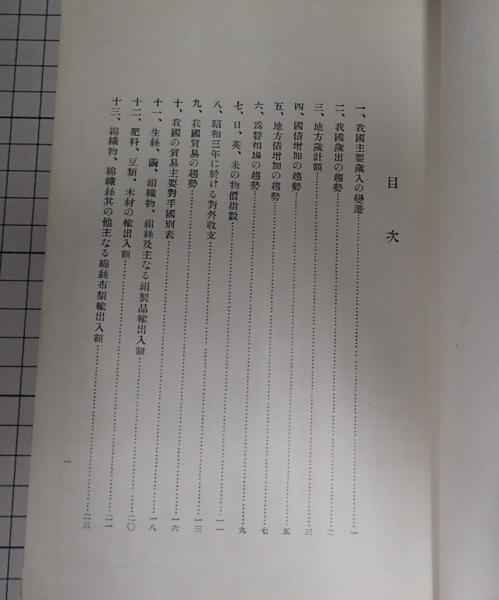 目次
一、我國主要歲入の變遷…一
二、我國歲出の趨勢…二
三、地方歲計額…三
四、國債增加の趨勢…五
五、地方債增加の趨勢…七
六、爲替相場の趨勢…九
七、日、英、米の物價指數…一一
八、昭和三年に於ける對外收支…一三
九、我國貿易の趨勢…一六
十、我國の貿易主要對手國別表…一八
十一、生絲、繭、絹織物、絹絲及主なる絹製品輸出入額…二〇
十二、肥料、豆類、木材の輸出入額…二一
十三、綿織物、綿織絲其の他主なる綿絲布類輸出入額…二三
一